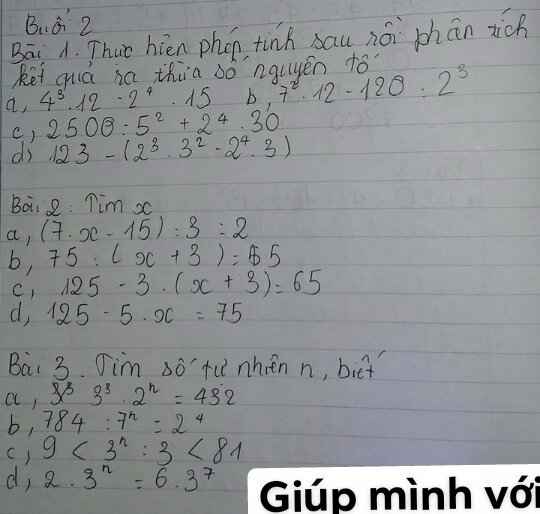 Buổi 2
Bài 1. Thực hiện phép tính sau rồi phân tích
kết quả ra thừa số nguyên tố
a, 4³.12 - 2⁴ . 15 b, 7².12 - 120 : 2³
c, 2500 : 5² + 2⁴ . 30
d, 123 - (2³ . 3² - 2⁴ . 3)
Bài 2: Tìm x
a, (7.x - 15) : 3 = 2
b, 75 : (x + 3) = 5
c, 125 - 3 . (x + 3) = 65
d, 125 - 5 . x = 75
Bài 3. Tìm số tự nhiên n, biết
a, 3³ . 2ⁿ = 432
b, 784 : 7ⁿ = 2⁴
c, 9 < 3ⁿ : 3 < 81
d, 2 . 3ⁿ = 6 . 3⁷
Giúp mình với